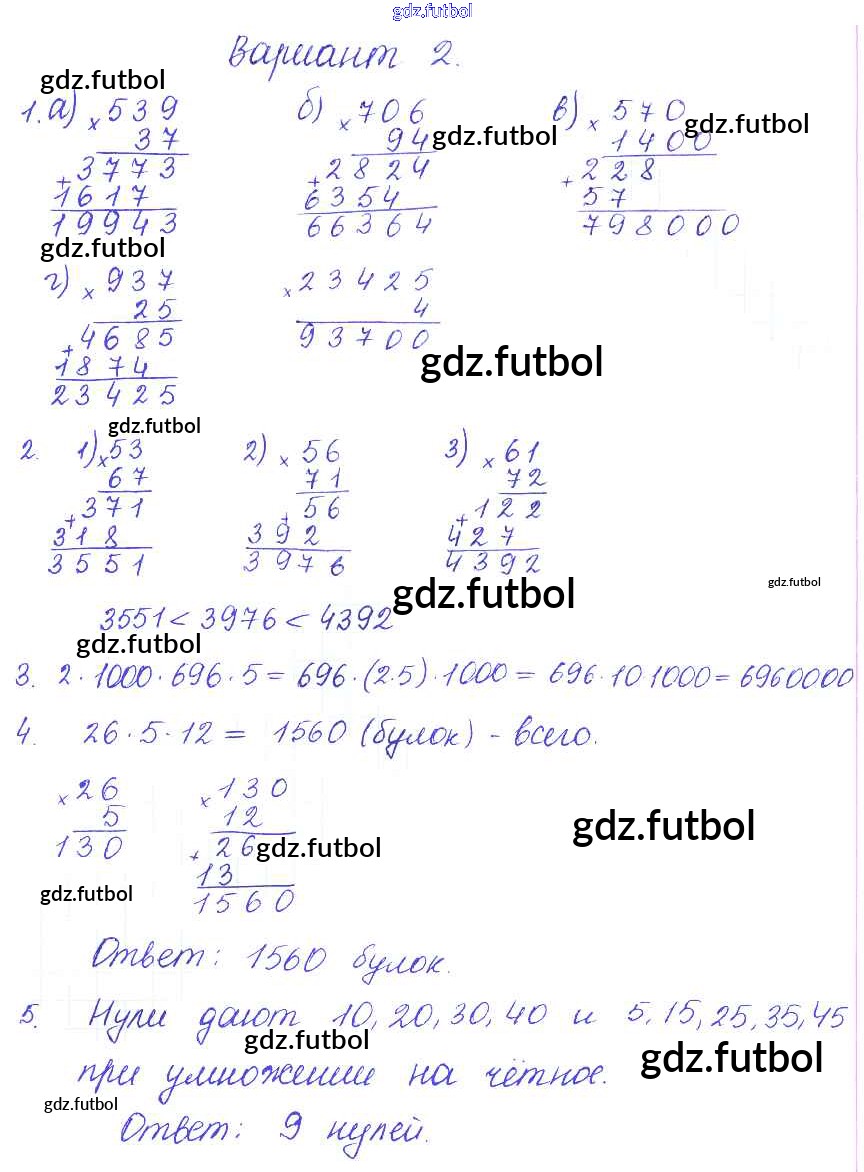 gdz.futbol
Вариант 2.
gdz.futbol
1. а) × 539 б) × 706 в) × 570
37 94 1400
gdz.futbol gdz.futbol
+ 3773 + 2824 + 228
1617 6354 57
19943 66364 798000
gdz.futbol
г) × 937 × 23425
25 4
+ 4685 93700
1874
23425
gdz.futbol
gdz.futbol
2. 1) × 53 2) × 56 3) × 61
67 71 72
+ 371 + 56 + 122
318 392 427
3551 3976 4392
gdz.futbol
gdz.futbol
3551 < 3976 < 4392
gdz.futbol
3. 2 · 1000 · 696 · 5 = 696 · (2·5) · 1000 = 696 · 10 1000 = 6960000
4. 26 · 5 · 12 = 1560 (булок) - всего.
× 26 × 130
5 12
130 + 26
gdz.futbol
gdz.futbol
13
gdz.futbol
1560
Ответ: 1560 булок.
5. Нули дают 10, 20, 30, 40 и 5, 15, 25, 35, 45
gdz.futbol
gdz.futbol
при умножении на чётное.
gdz.futbol
Ответ: 9 нулей.